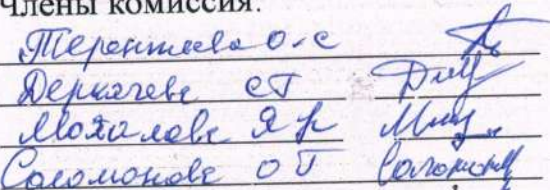 Члены комиссия:
Терентьева О.С
Деркачева СТ
Мохалова Я Р
Соломонова О Г